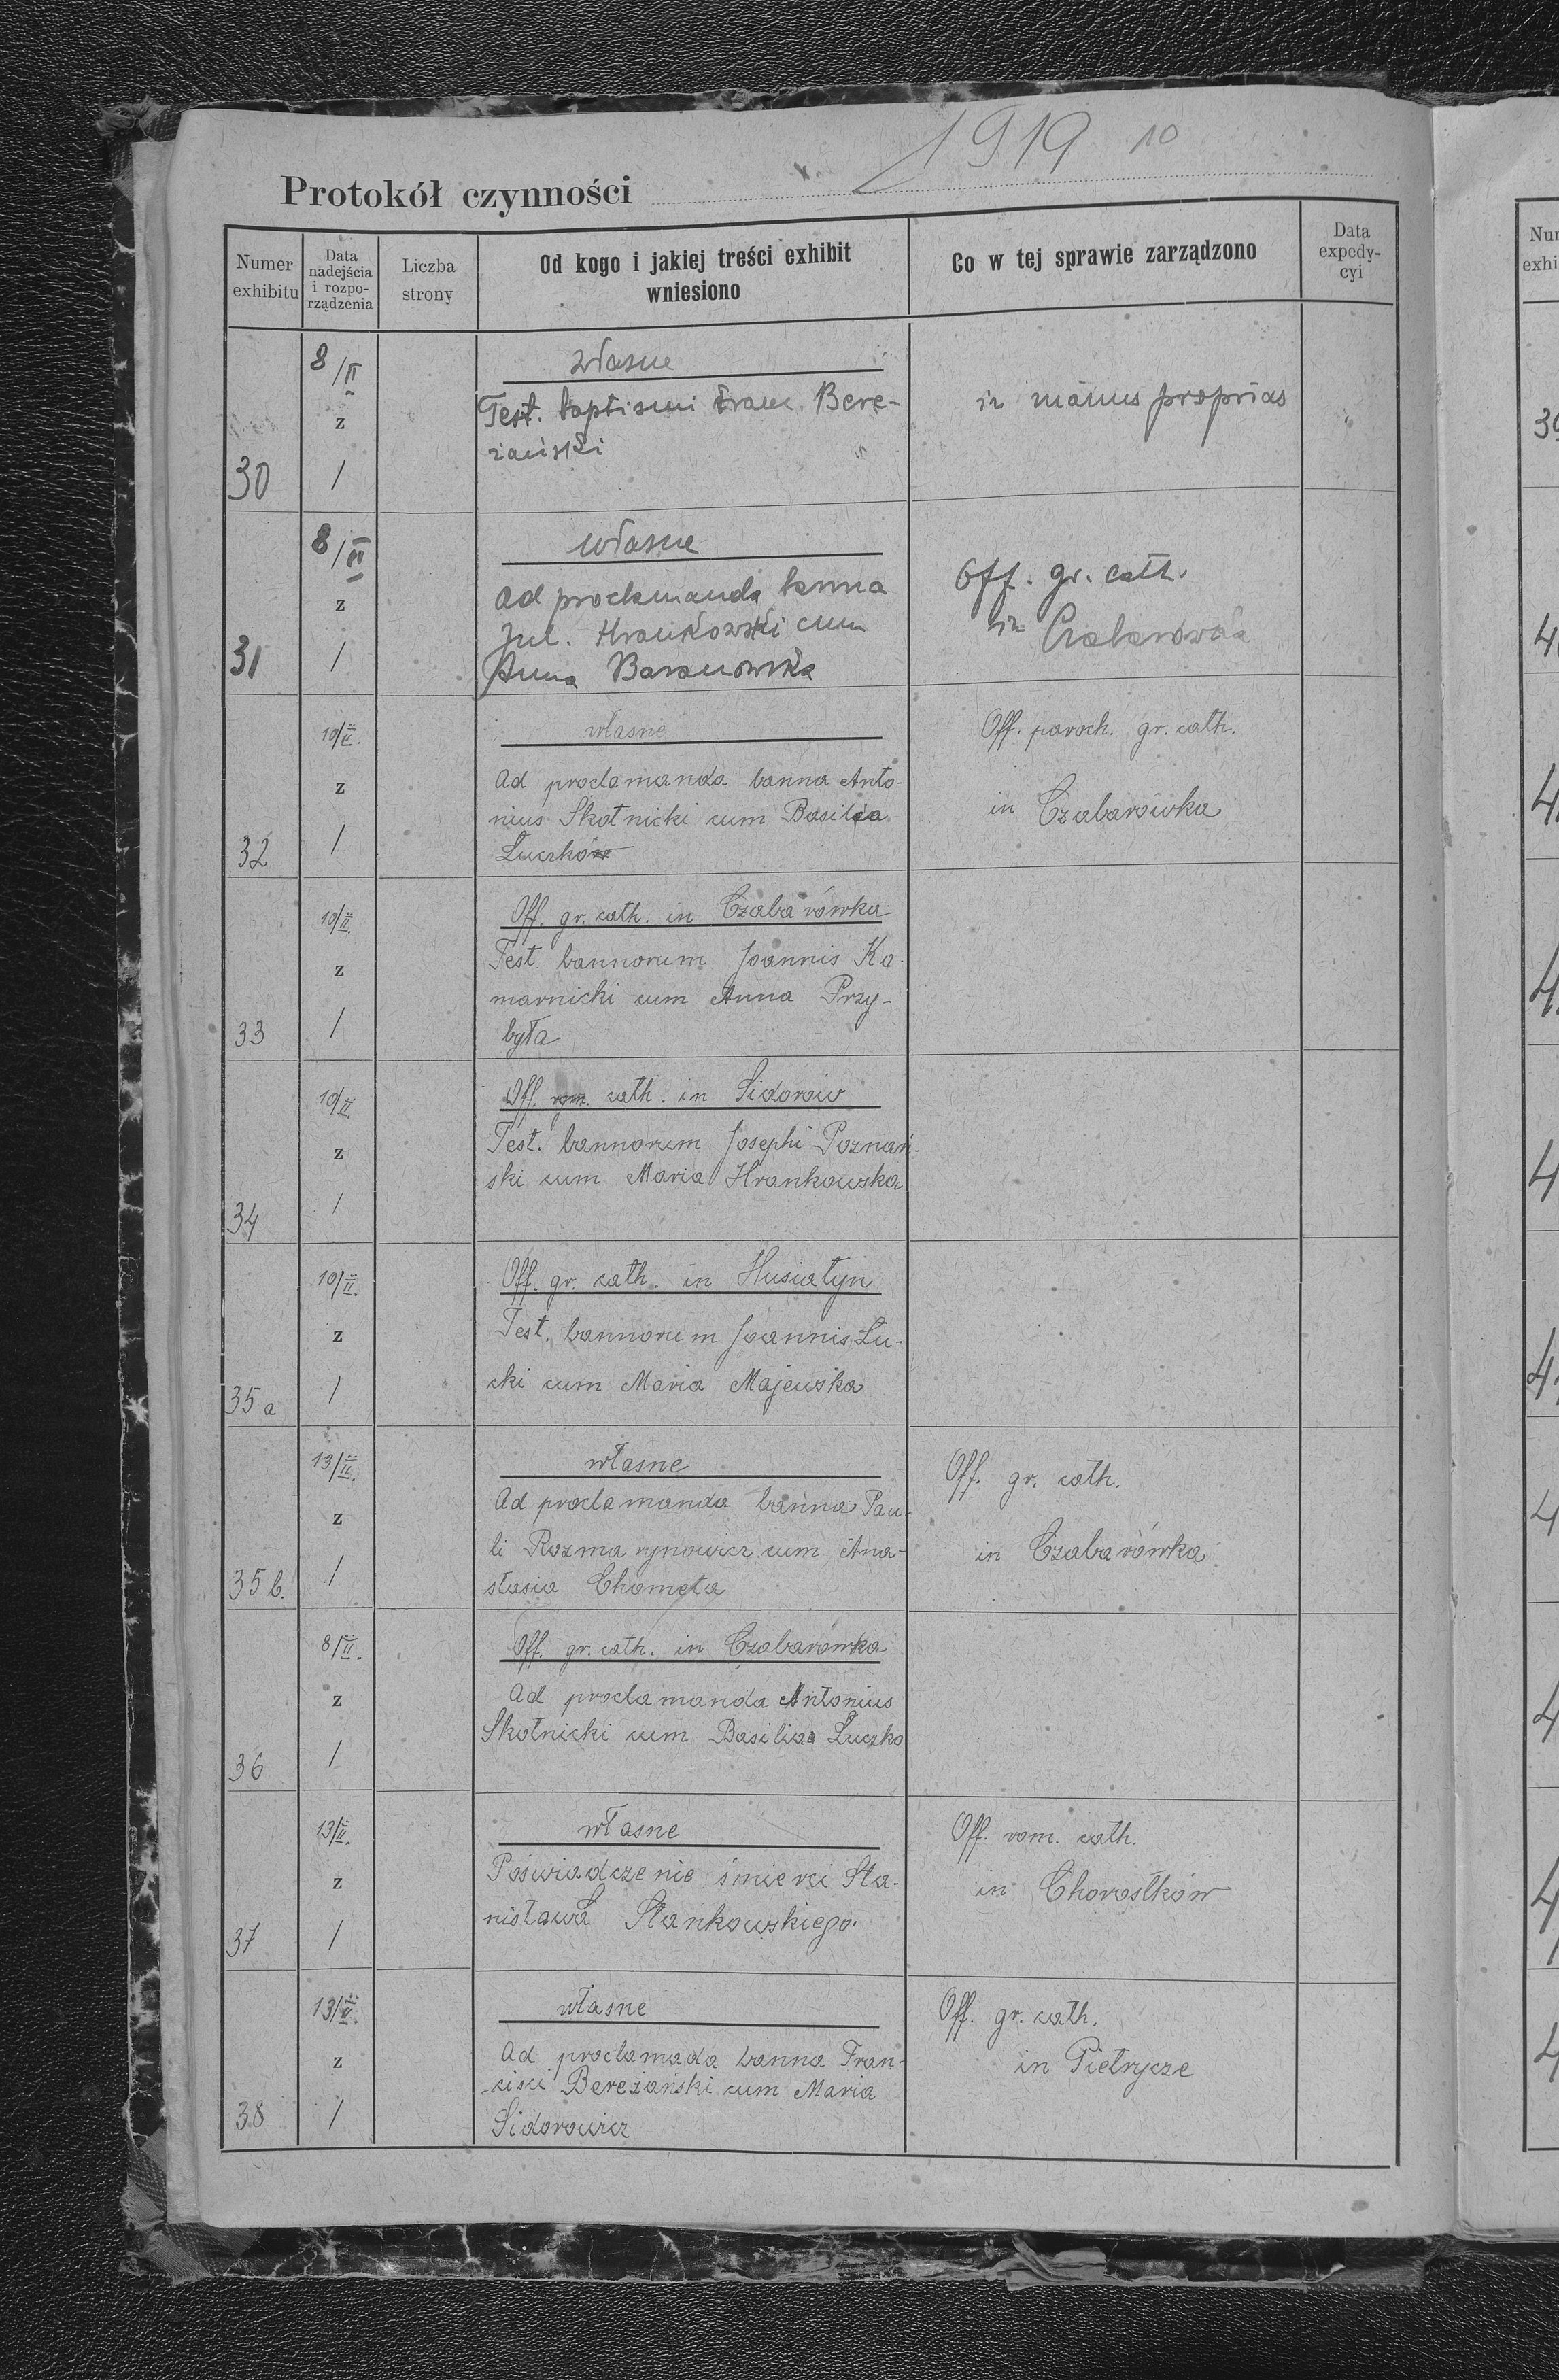 1919 10
Protokół czynności
Numer exhibitu
Data nadejścia i rozpo-rządzenia
Liczba strony
Od kogo i jakiej treści exhibit wniesiono
Co w tej sprawie zarządzono
Data expedy-cyi
8/II z 1
30
własne
Test. baptismi Franc. Bere-
zański
in manus proprias
8/II z 1
31
własne
Ad proclamanda banna
Jul. Hrankowski cum
Anna Baranowska
Off. gr. cath.
in Czabarówka
10/II. z 1
32
własne
Ad proclamanda banna Anto-
nius Skotnicki cum Basilia
Łuczków
Off. paroch. gr. cath.
in Czabarówka
10/II. z 1
33
Off. gr. cath. in Czabarówka
Test. bannorum Joannis Ka-
marnicki cum Anna Przy-
była
10/II. z 1
34
Off. rom. cath. in Sidorów
Test. bannorum Josephi Poznań-
ski cum Maria Hrankowska
10/II. z 1
35 a
Off. gr. cath. in Husiatyn
Test. bannorum Joannis Łu-
cki cum Maria Majewska
13/II. z 1
35 b.
własne
Ad proclamanda banna Pau-
li Rozmarynowicz cum Ana-
stasia Chometa
Off. gr. cath.
in Czabarówka
8/II. z 1
36
Off. gr. cath. in Czabarówka
Ad proclamanda Antonius
Skotnicki cum Basilia Łuczko
13/II. z 1
37
własne
Poświadczenie śmierci Sta-
nisława Stankowskiego
Off. rom. cath.
in Chorostków
13/II. z 1
38
własne
Ad proclamada banna Fran-
cisci Bereżański cum Maria
Sidorowicz
Off. gr. cath.
in Pietrycze